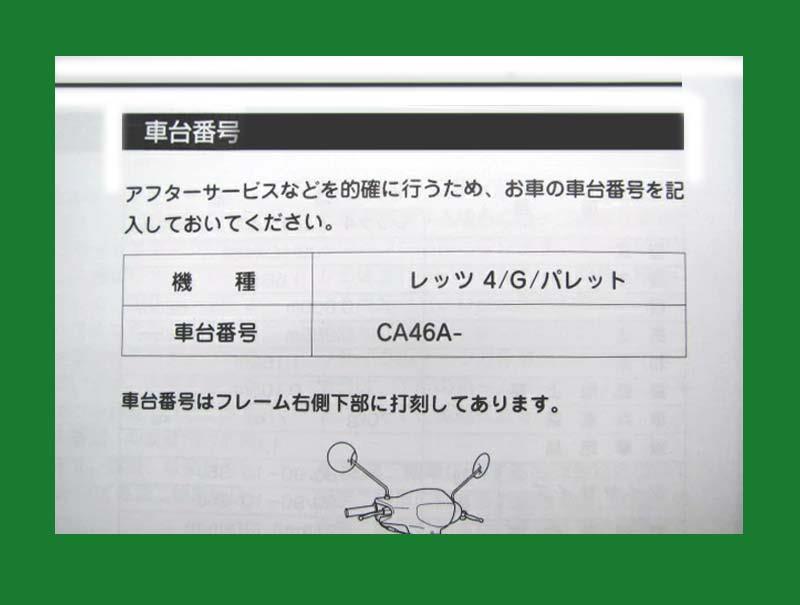 車台番号
アフターサービスなどを的確に行うため、お車の車台番号を記
入しておいてください。
機 種 レッツ 4/G/パレット
車台番号 CA46A-
車台番号はフレーム右側下部に打刻してあります。